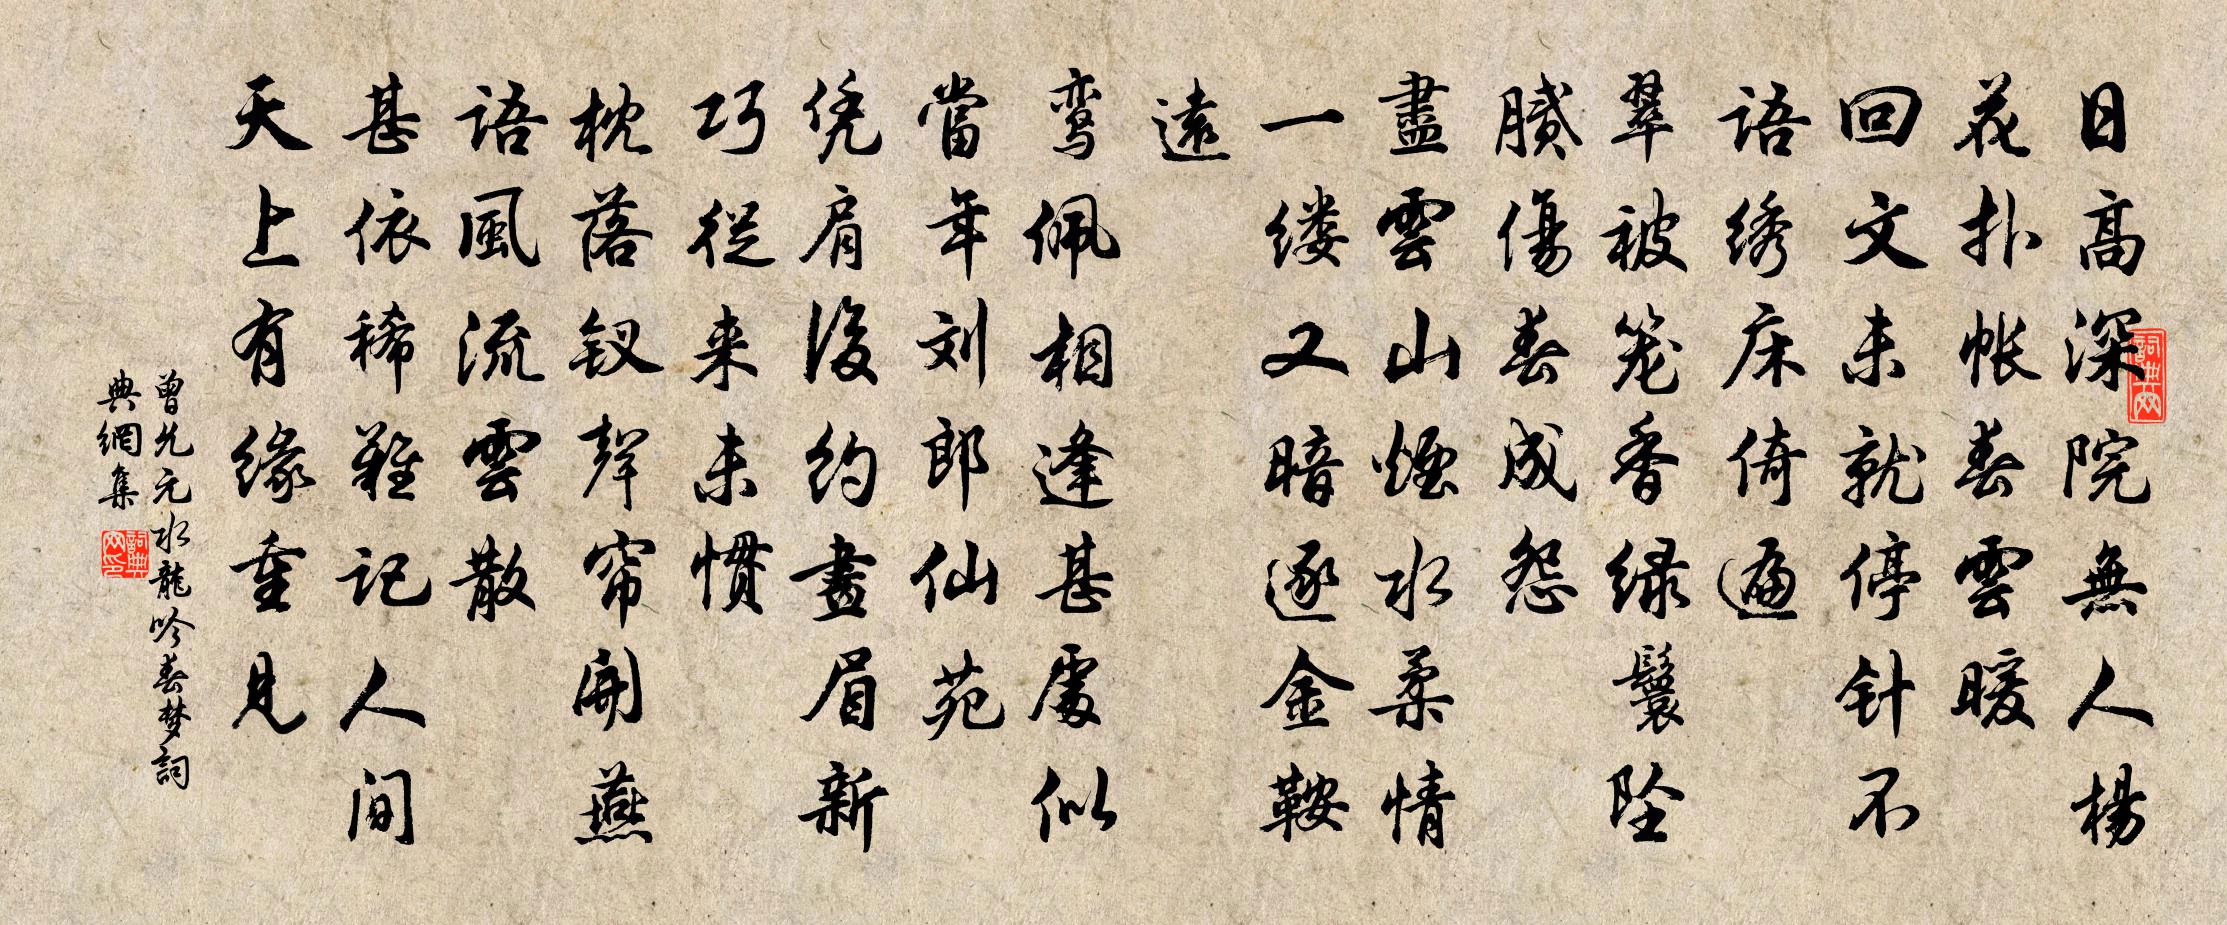 日高深院無人楊
花扑帐春雲暖
回文未就停针不
语绣床倚遍
翠被笼香绿鬟坠
腻傷春成怨
盡雲山煙水柔情
一缕又暗逐金鞍
遠
鸾佩相逢甚處似
當年刘郎仙苑
凭肩後约畫眉新
巧從来未慣
枕落钗聲帘開燕
语風流雲散
甚依稀難记人间
天上有緣重見
曾允元水龍吟春梦詞
典網集